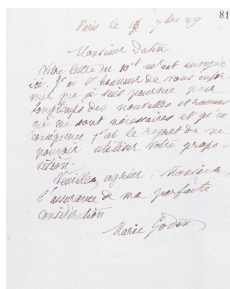 81
Paris le 18 7bre 89
Monsieur Dahn
Votre lettre du 10 m'est envoyée
ici. J'ai l'honneur de vous infor
mer que je suis pourvue pour
longtemps des nouvelles et romans
qui me sont nécessaires et qu'en
conséquence j'ai le regret de ne
pouvoir utiliser votre propo
sition.
Veuillez agréer, Monsieur,
l'assurance de ma parfaite
considération
Marie